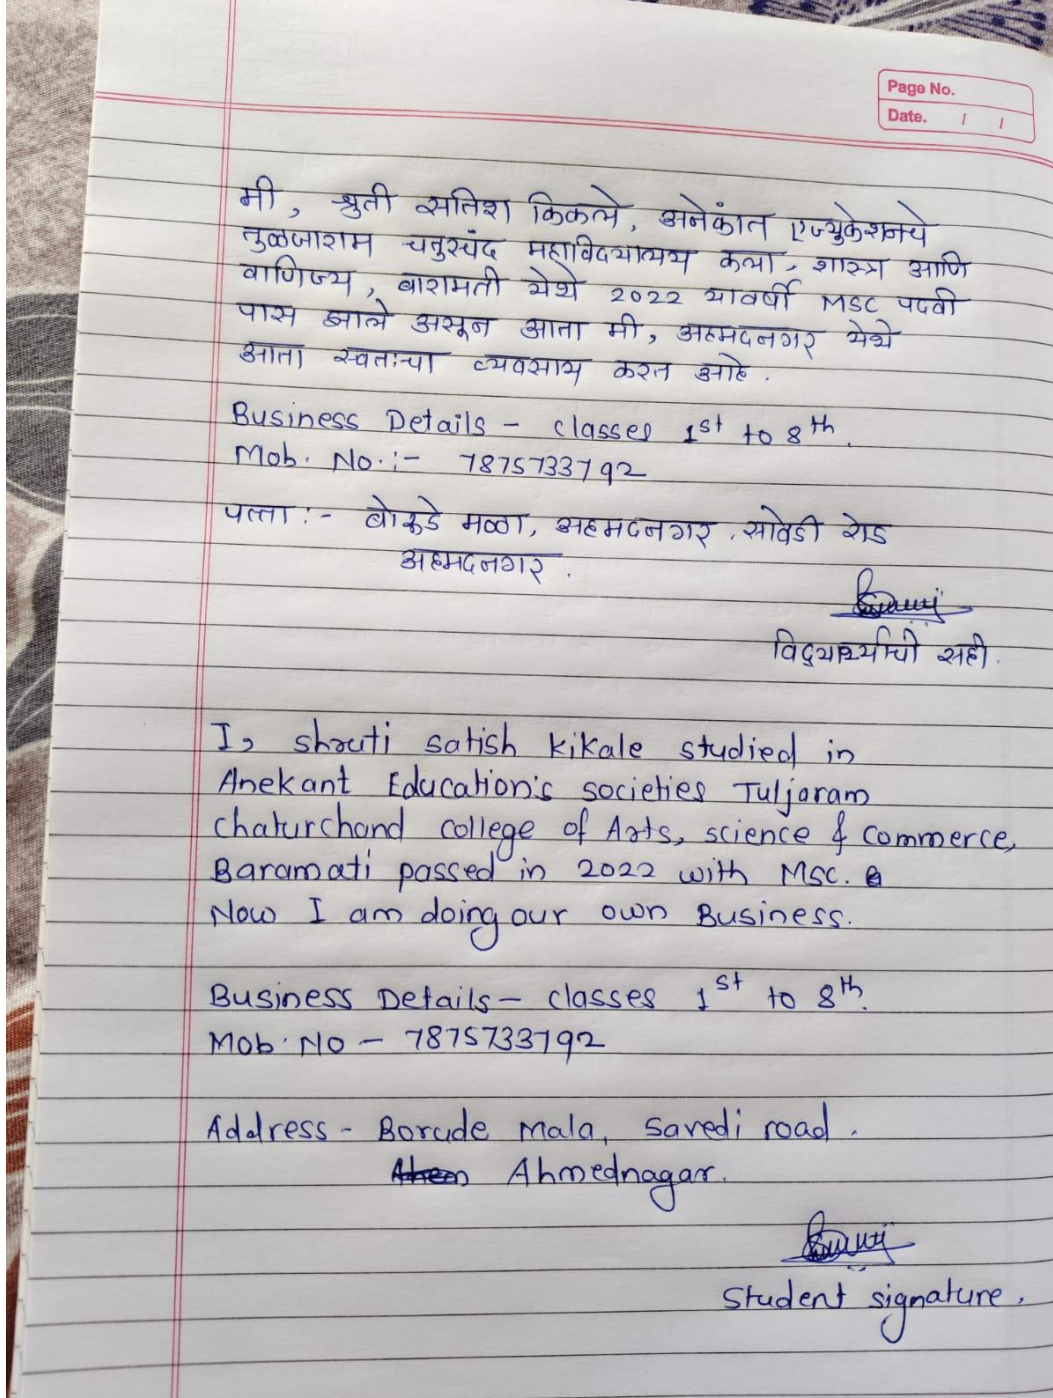 Page No.
Date. / /
मी, श्रुती सतिश किकले, अनेकांत एज्युकेशनचे
तुळजाराम चतुरचंद महाविदयालय कला, शास्त्र आणि
वाणिज्य, बारामती येथे 2022 यावर्षी MSC पदवी
पास झाले असून आता मी, अहमदनगर येथे
आता स्वतःचा व्यवसाय करत आहे.
Business Details - classes 1st to 8th.
Mob. No.:- 7875733792
पत्ता :- बोरुडे मळा, अहमदनगर, सावेडी रोड
अहमदनगर.
विद्यार्थ्याची सही.
I, shruti satish kikale studied in
Anekant Education's societies Tuljaram
chaturchand college of Arts, science & commerce,
Baramati passed in 2022 with MSC.
Now I am doing our own Business.
Business Details - classes 1st to 8th.
Mob. No - 7875733792
Address - Borude mala, savedi road.
Ahmednagar.
student signature.